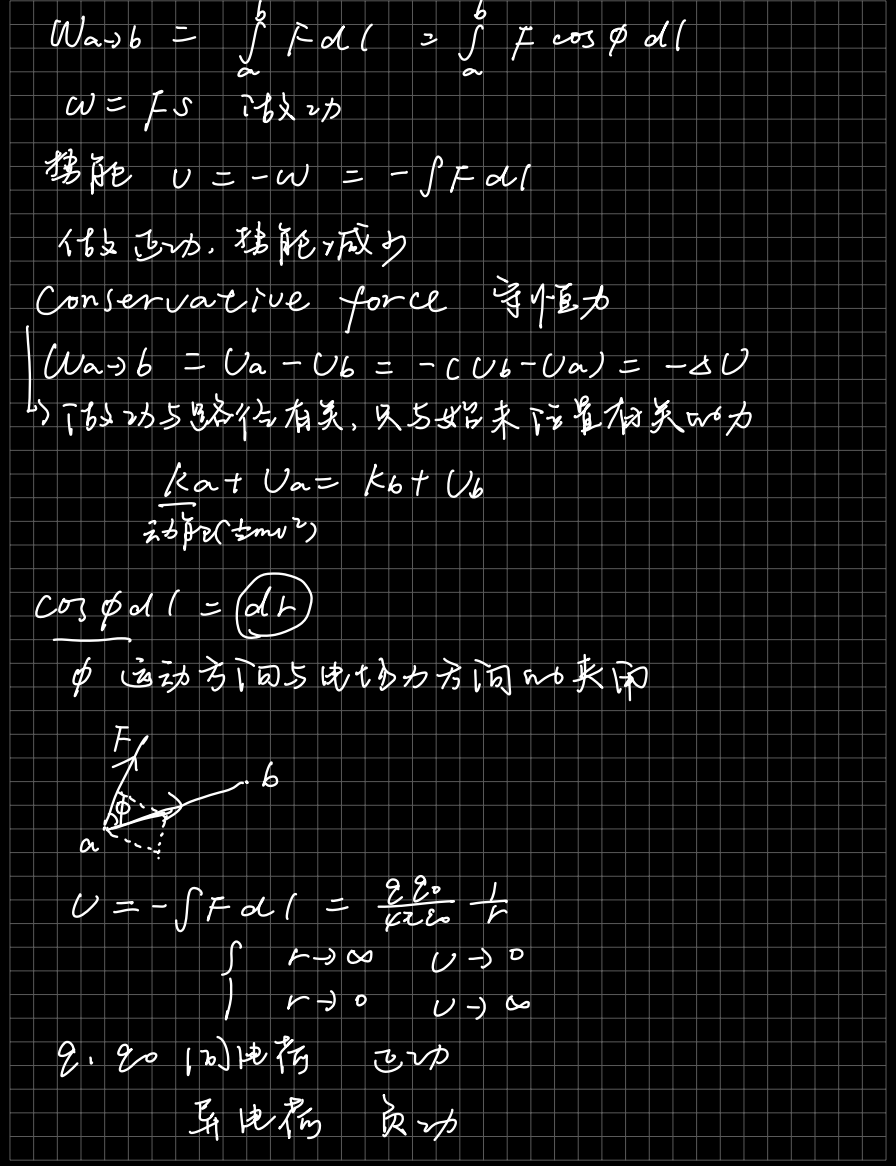 Wa→b = ∫ₐᵇ F dl = ∫ₐᵇ F cosφ dl
W = Fs 做功
势能 U = -W = -∫F dl
做正功, 势能减少
Conservative force 守恒力
Wa→b = Ua - Ub = -(Ub-Ua) = -ΔU
↳ 做功与路径有关, 只与始末位置有关的力
Ka + Ua = Kb + Ub
动能(½mv²)
cosφ dl = dr
φ 运动方向与电场力方向的夹角
F
b
φ
a
U = -∫F dl = qq₀/4πε₀ 1/r
{ r→∞ U→0
r→0 U→∞
q, q₀ 同电荷 正功
异电荷 负功